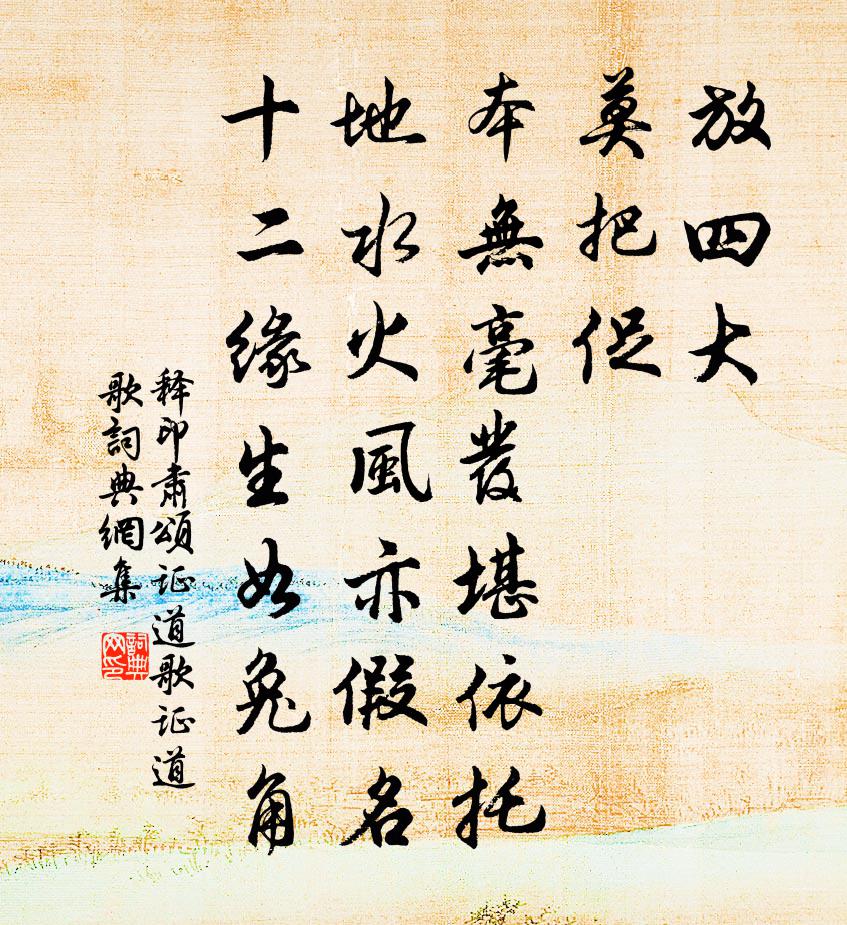 放四大
莫把促
本無毫發堪依托
地水火風亦假名
十二緣生如兔角
释印肃頌证道歌证道
歌詞典網集
詞典网印